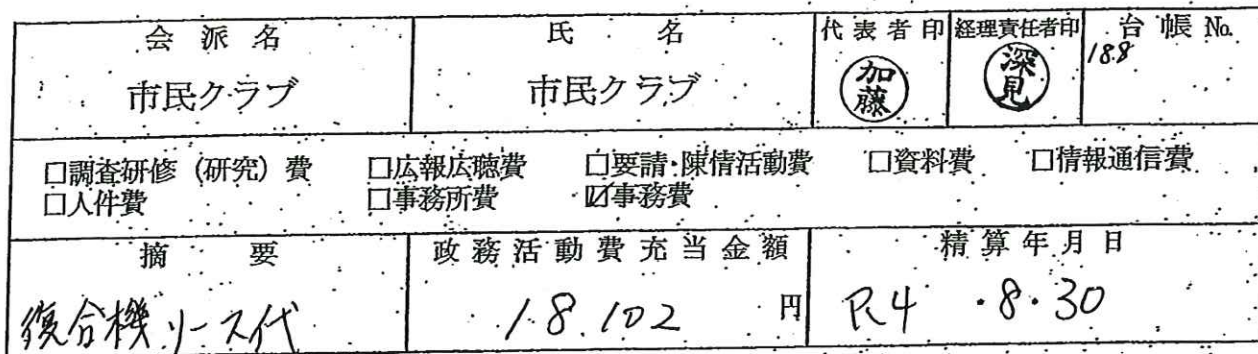 会派名 氏名 代表者印 経理責任者印 台帳No.
市民クラブ 市民クラブ 加藤 深見 188
□調査研修(研究)費 □広報広聴費 □要請・陳情活動費 □資料費 □情報通信費
□人件費 □事務所費 ☑事務費
摘要 政務活動費充当金額 精算年月日
復合機リース代 18,102円 R4・8・30